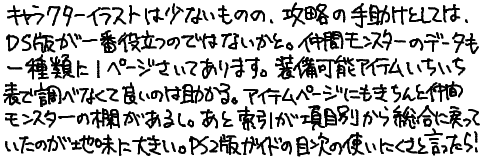 キャラクターイラストは少ないものの、攻略の手助けとしては、
DS版が一番役立つのではないかと。仲間モンスターのデータも
一種類に1ページさいてあります。装備可能アイテムいちいち
表で調べなくて良いのは助かる。アイテムページにもきちんと仲間
モンスターの欄があるし。あと索引が項目別から総合に戻って
いたのが地味に大きい。PS2版ガイドの目次の使いにくさと言ったら!